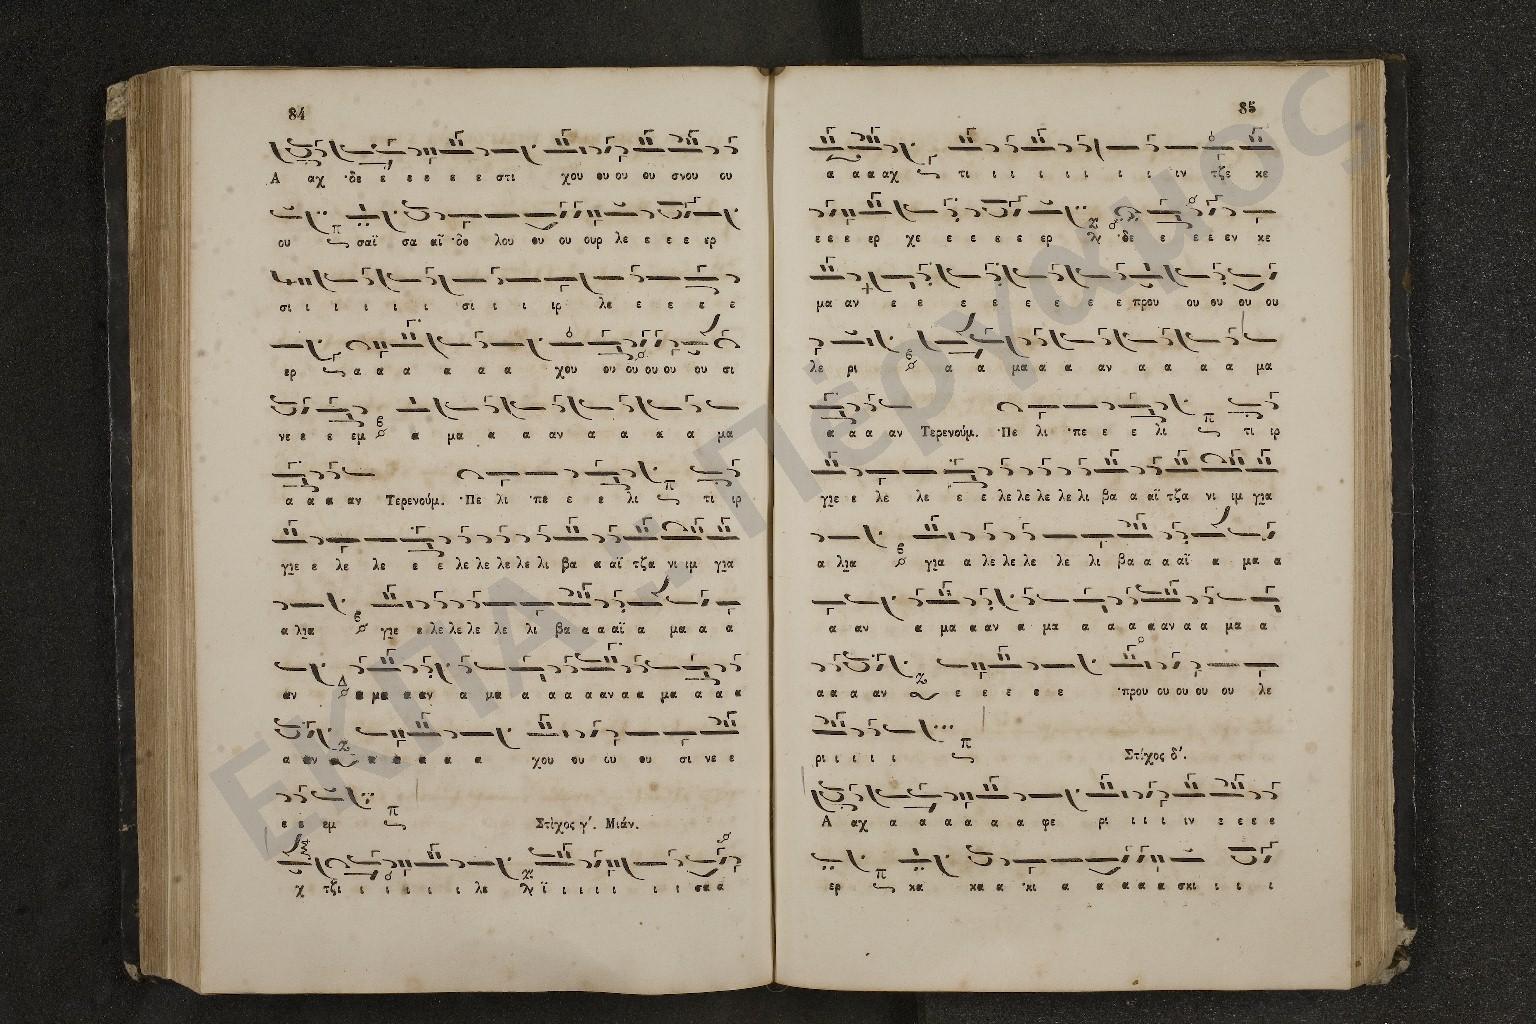 84
Α αχ ·δε ε ε ε ε ε στι χου ου ου ου σνου ου
ου π σαϊ σα αϊ ·δο λου ου ου ουρ λε ε ε ε ερ
σι ι ι ι ι ι σι ι ι ιρ λε ε ε ε ε
ερ α α α α α α χου ου ου ου ου ου σι
νε ε ε εμ α μα α α αν α α α α μα
α α α αν Τερενούμ. ·Πε λι ·πε ε ε λι π τι ιρ
γιε ε λε λε ε ε λε λε λε λε λι βα α αϊ τζα νι ιμ για
α λια γιε ε λε λε λε λε λι βα α α αϊ α μα α α
αν Δ α μα α αν α μα α α α α αν α α μα α α α
α αν α α α α α χου ου ου ου σι νε ε
ε ε εμ π Στίχος γ΄. Μιάν.
χ τζι ι ι ι ι ι λε ϊ ι ι ι ι ι ι σα α
85
α α α αχ τι ι ι ι ι ι ι ι ιν τζε κε
ε ε ε ερ χε ε ε ε ε ερ ·δε ε ε ε εν κε
μα αν ε ε ε ε ε ε ε ε πρου ου ου ου ου
λε ρι α α μα α α αν α α α α μα
α α α αν Τερενούμ. ·Πε λι ·πε ε ε λι π τι ιρ
γιε ε λε λε ε ε λε λε λε λε λι βα α αϊ τζα νι ιμ για
α λια για α λε λε λε λε λι βα α α αϊ α μα α
α αν α μα α αν α μα α α α α αν α α μα α
α α α αν ε ε ε ε ε ·πρου ου ου ου ου λε
ρι ι ι ι ι π Στίχος δ΄.
Α αχ α α α α α α φε ρι ι ι ι ιν ε ε ε ε
ερ π κα κα α ·κι α α α α α σκι ι ι ι
ΕΚΠΑ - Πέργαμος